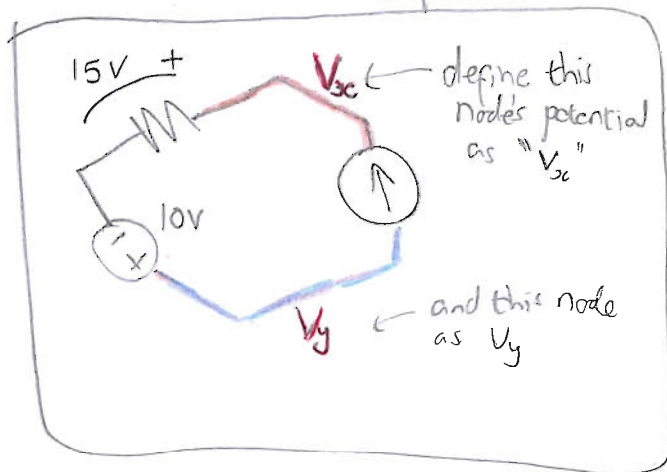 15V +
Vx
define this
node's potential
as "Vx"
- +
10V
Vy
and this node
as Vy